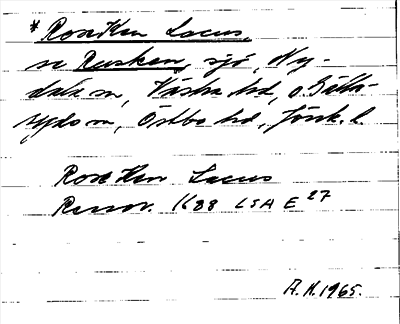 * Rosken Lacus,
se Rusken, sjö, Ny-
dala sn, Västra hd, o. Gälla-
ryds sn, Östbo hd, Jönk. l.
Rosken Lacus
Rannv. 1688 LSA E 27
A.H. 1965.